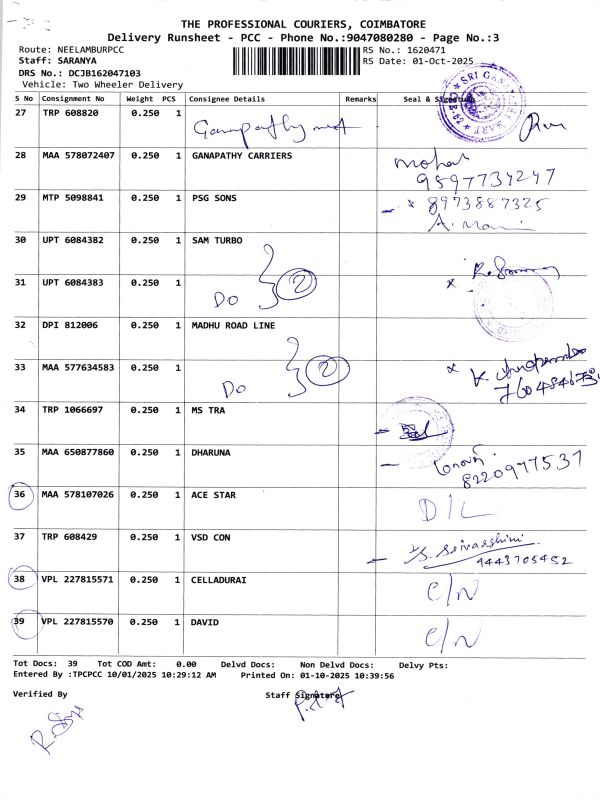 THE PROFESSIONAL COURIERS, COIMBATORE
Delivery Runsheet - PCC - Phone No.:9047080280 - Page No.:3
Route: NEELAMBURPCC
RS No.: 1620471
Staff: SARANYA
RS Date: 01-Oct-2025
DRS No.: DCJB162047103
Vehicle: Two Wheeler Delivery
S No Consignment No Weight PCS Consignee Details Remarks Seal & Signature
27 TRP 608820 0.250 1 Ganapathy mart
28 MAA 578072407 0.250 1 GANAPATHY CARRIERS
Mohan
9597734247
29 MTP 5098841 0.250 1 PSG SONS
8973887325
A. Mani
30 UPT 6084382 0.250 1 SAM TURBO
31 UPT 6084383 0.250 1 Do 2
32 DPI 812006 0.250 1 MADHU ROAD LINE
33 MAA 577634583 0.250 1 Do 2
34 TRP 1066697 0.250 1 MS TRA
35 MAA 650877860 0.250 1 DHARUNA
8220977537
36 MAA 578107026 0.250 1 ACE STAR D/L
37 TRP 608429 0.250 1 VSD CON
9443705452
38 VPL 227815571 0.250 1 CELLADURAI C/N
39 VPL 227815570 0.250 1 DAVID C/N
Tot Docs: 39 Tot COD Amt: 0.00 Delvd Docs: Non Delvd Docs: Delvy Pts:
Entered By :TPCPCC 10/01/2025 10:29:12 AM Printed On: 01-10-2025 10:39:56
Verified By Staff Signature